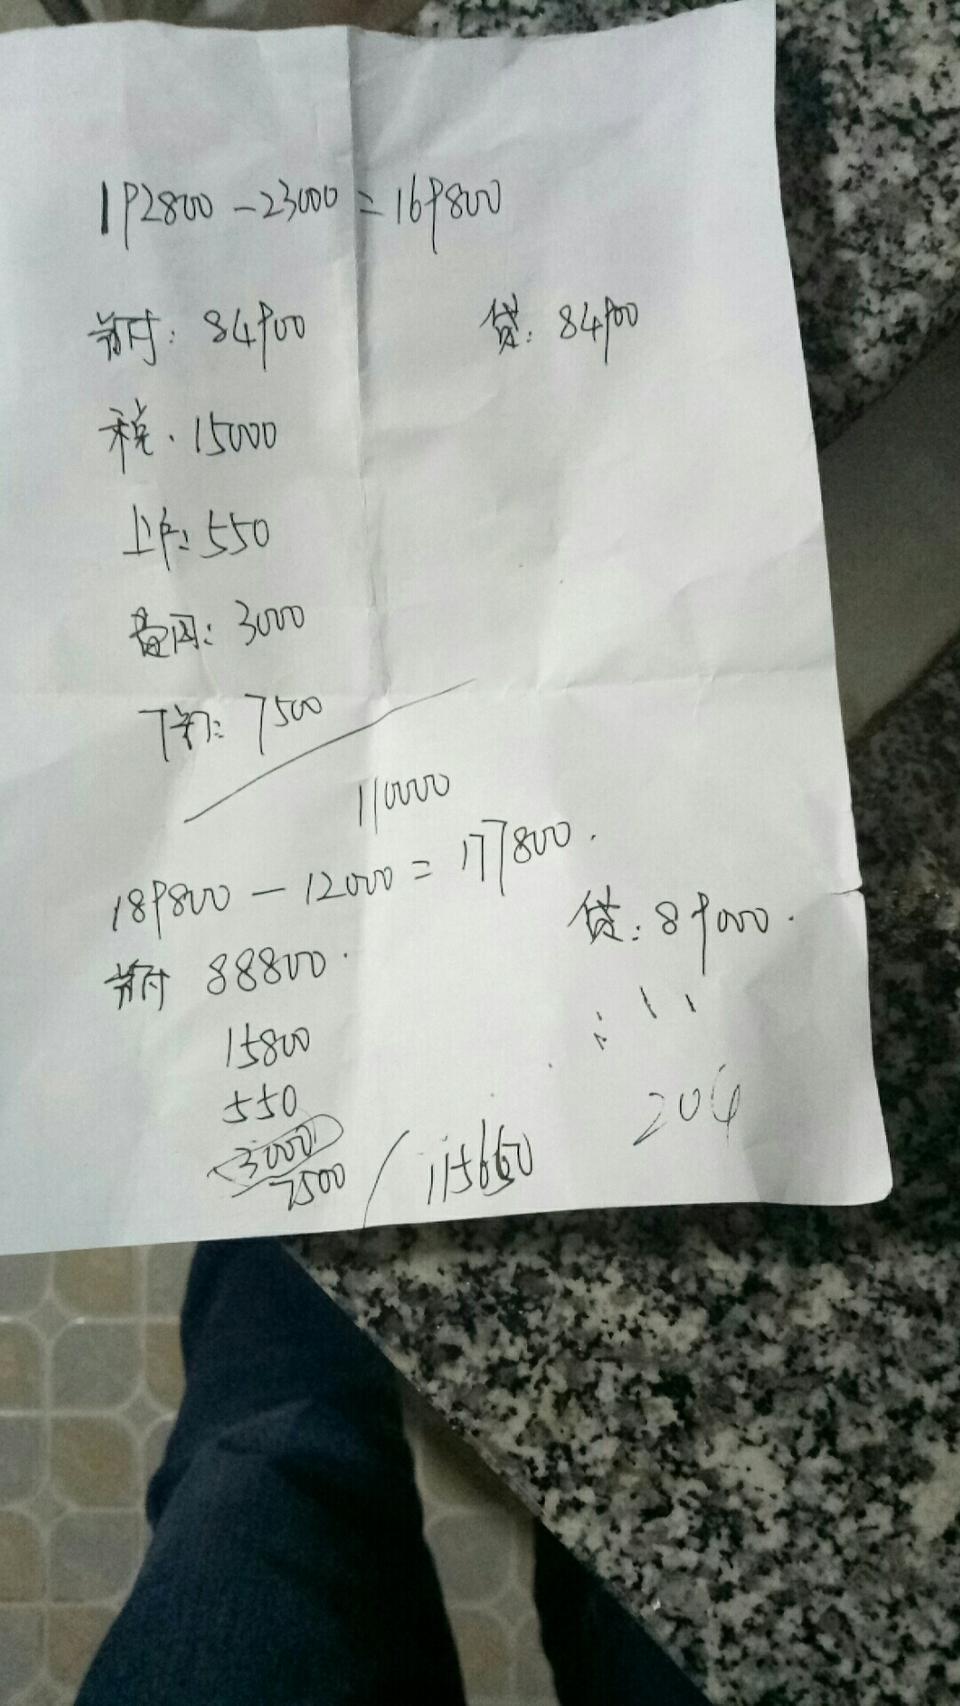 192800 - 23000 = 169800
首付: 84900 贷: 84900
税. 15000
上户: 550
3000
7500
110000
189800 - 12000 = 177800.
首付 88800. 贷: 89000.
15800
550
3000
7500 / 115660
204